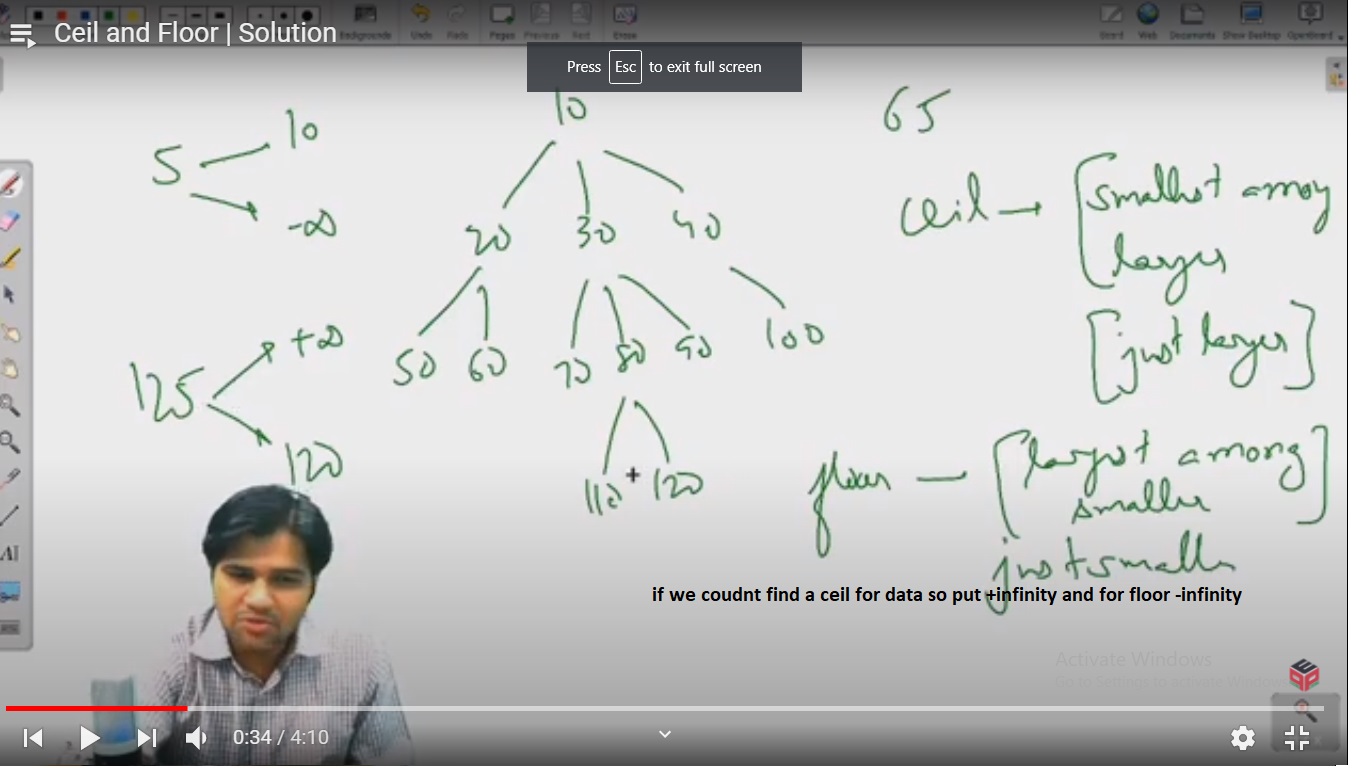 Ceil and Floor | Solution
Backgrounds Undo Redo Pages Previous Next Erase Board Web Documents Show Desktop OpenBoard
Press Esc to exit full screen
10
65
5
10
-∞
20 30 40
ceil → [smallest among
larger
[just larger]
125
+∞
120
50 60 70 80 90 100
110 120
floor — [largest among]
smaller
just smaller
if we coudnt find a ceil for data so put +infinity and for floor -infinity
Activate Windows
Go to Settings to activate Windows
AI
0:34 / 4:10